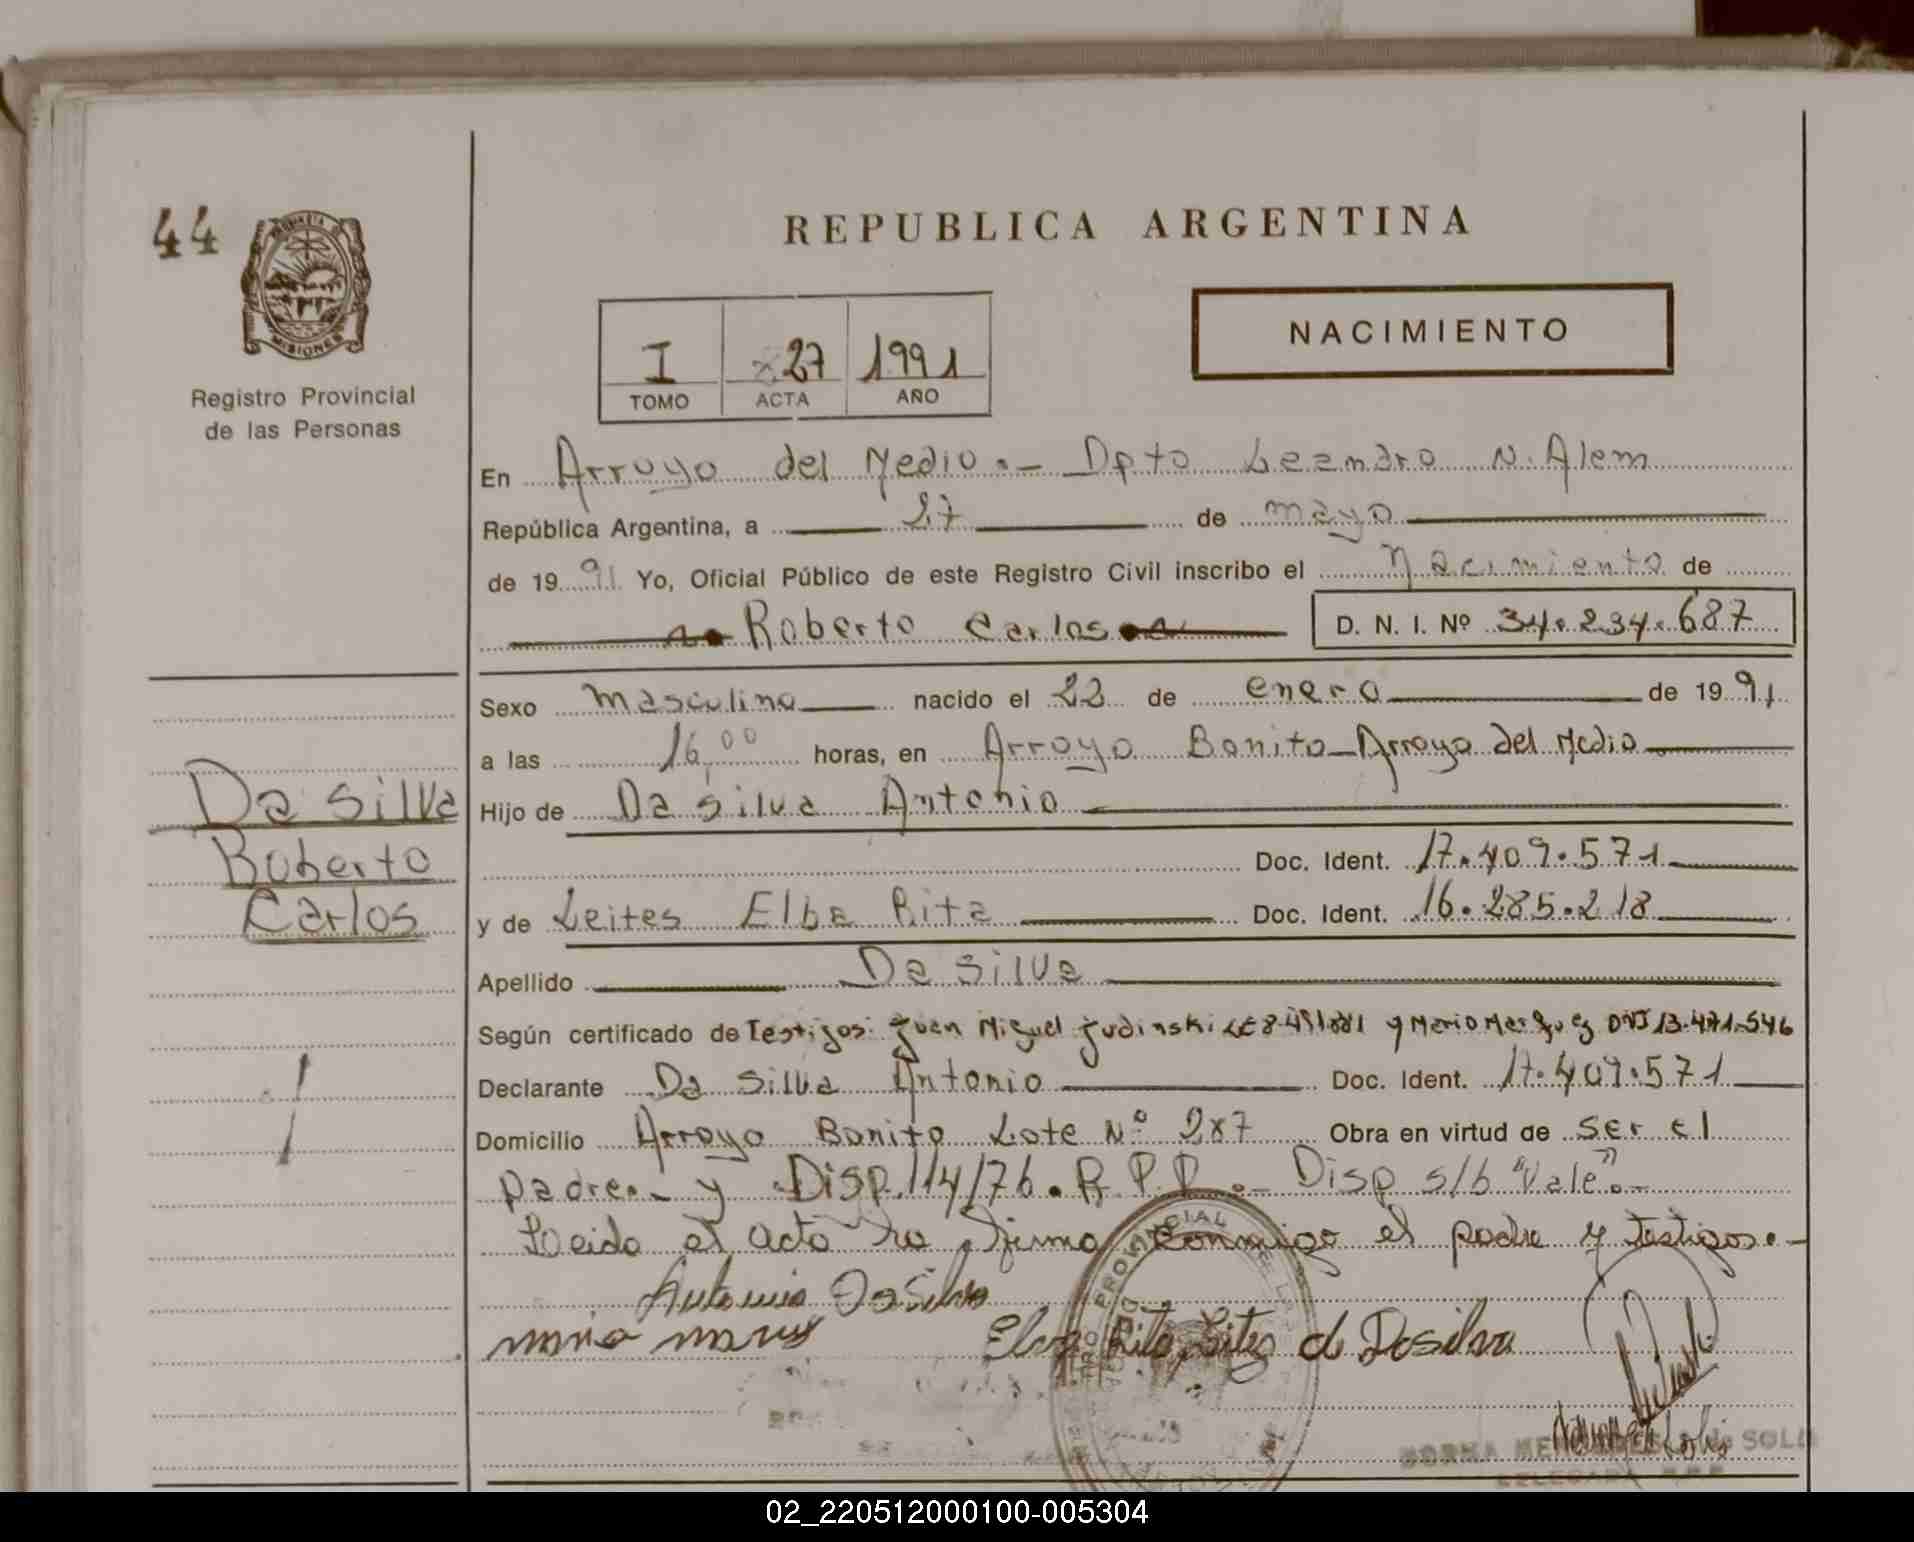 44
MISIONES
Registro Provincial
de las Personas
REPUBLICA ARGENTINA
I 27 1991
TOMO ACTA AÑO
NACIMIENTO
En Arroyo del Medio.- Dpto Leandro N. Alem
República Argentina, a 27 de mayo
de 19 91 Yo, Oficial Público de este Registro Civil inscribo el Nacimiento de
Roberto Carlos D. N. I. Nº 34.234.687
Sexo Masculino nacido el 22 de enero de 19 91
a las 16,00 horas, en Arroyo Bonito-Arroyo del Medio
Da Silva
Roberto
Carlos
Hijo de Da Silva Antonio
Doc. Ident. 17.409.571
y de Leites Elba Rita Doc. Ident. 16.285.218
Apellido Da Silva
Según certificado de Testigos: Juan Miguel Judinski LE y Mario Marquez DNI 13.471.546
Declarante Da Silva Antonio Doc. Ident. 17.409.571
Domicilio Arroyo Bonito Lote Nº 287 Obra en virtud de ser el
padre.- y Disp. 114/76. R.P.P.- Disp s/b "Vale".-
Leida el acta la firma conmigo el padre y testigos.-
Antonio DaSilva
Elva Rita Leites de Dasilva
NORMA de SOLI
DELEGADA
02_220512000100-005304